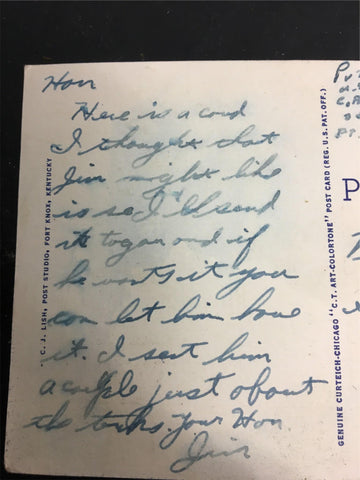 Hon
Here is a card
I thought that
Jim might like
is so I'll send
it to you and if
he wants it you
can let him have
it. I sent him
a couple just about
the tanks. Your Hon
Jim
C. J. LISH, POST STUDIO, FORT KNOX, KENTUCKY
GENUINE CURTEICH-CHICAGO "C.T. ART-COLORTONE" POST CARD (REG. U.S. PAT. OFF.)
P